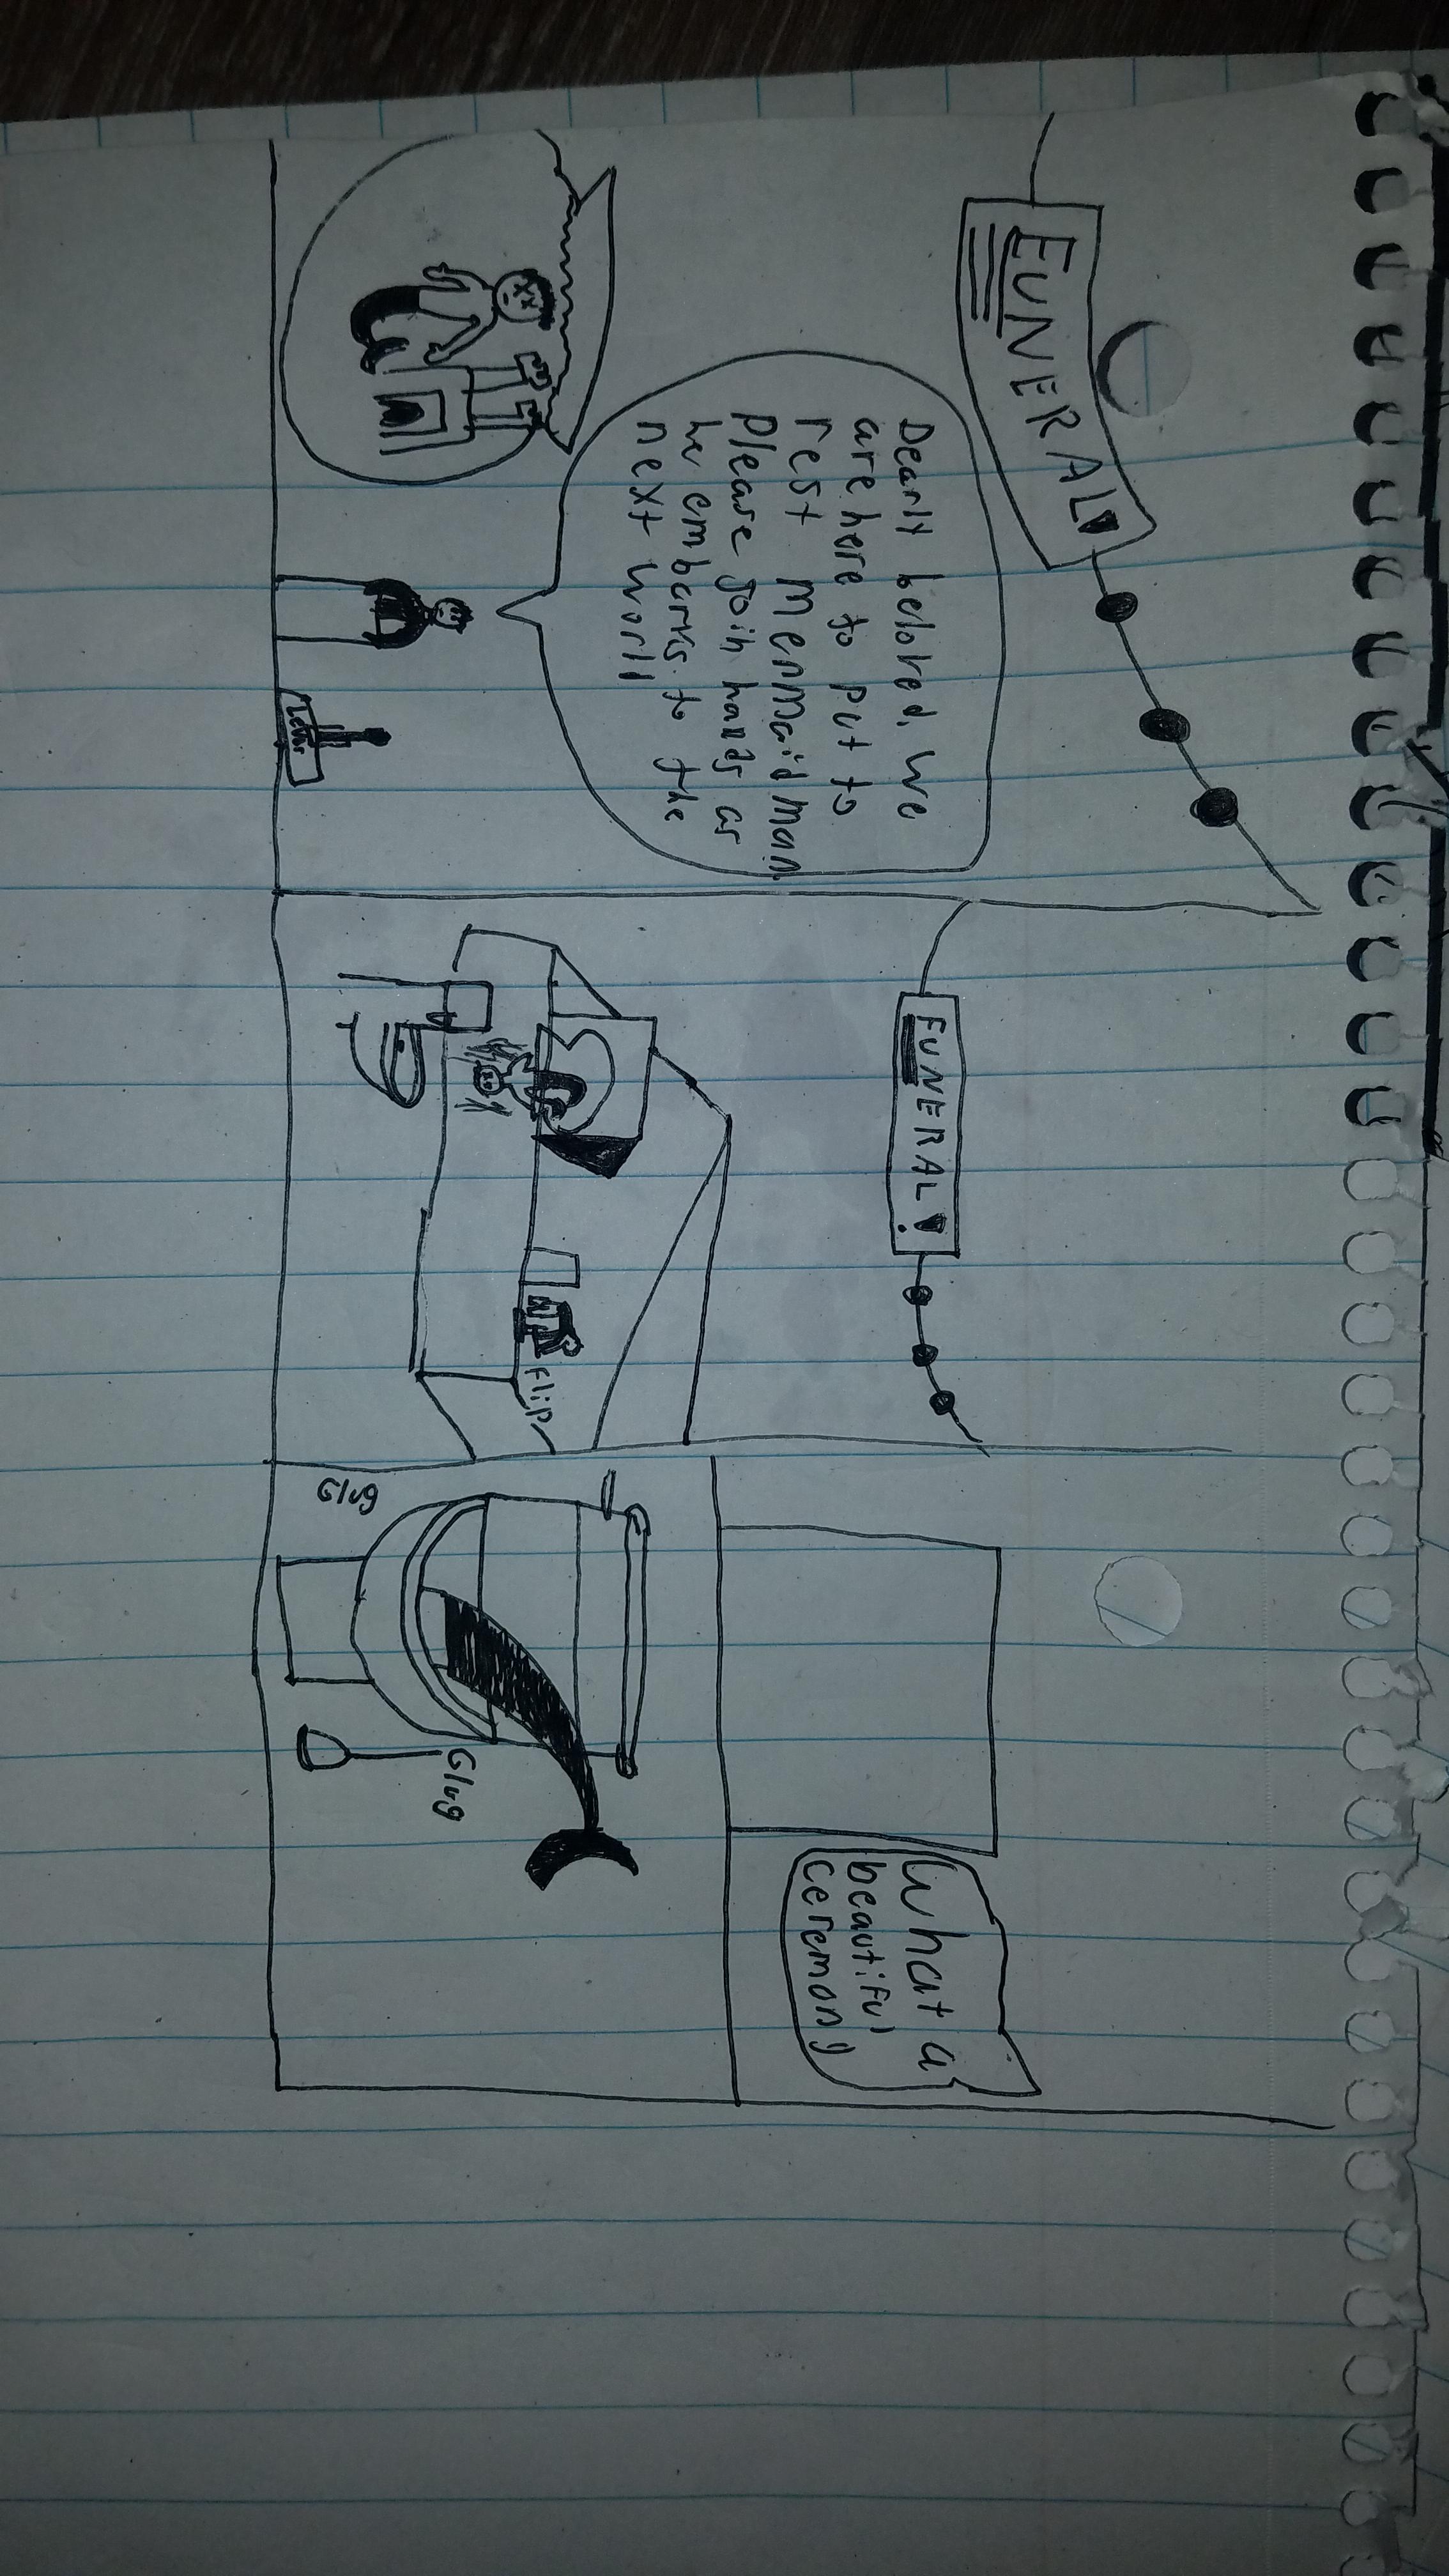 FUNERAL!
Dearly beloved, we
are here to put to
rest Mermaid man,
please join hands as
he embarks to the
next world
Lever
FUNERAL!
Flip
What a
beautiful
ceremony
Glug
Glug